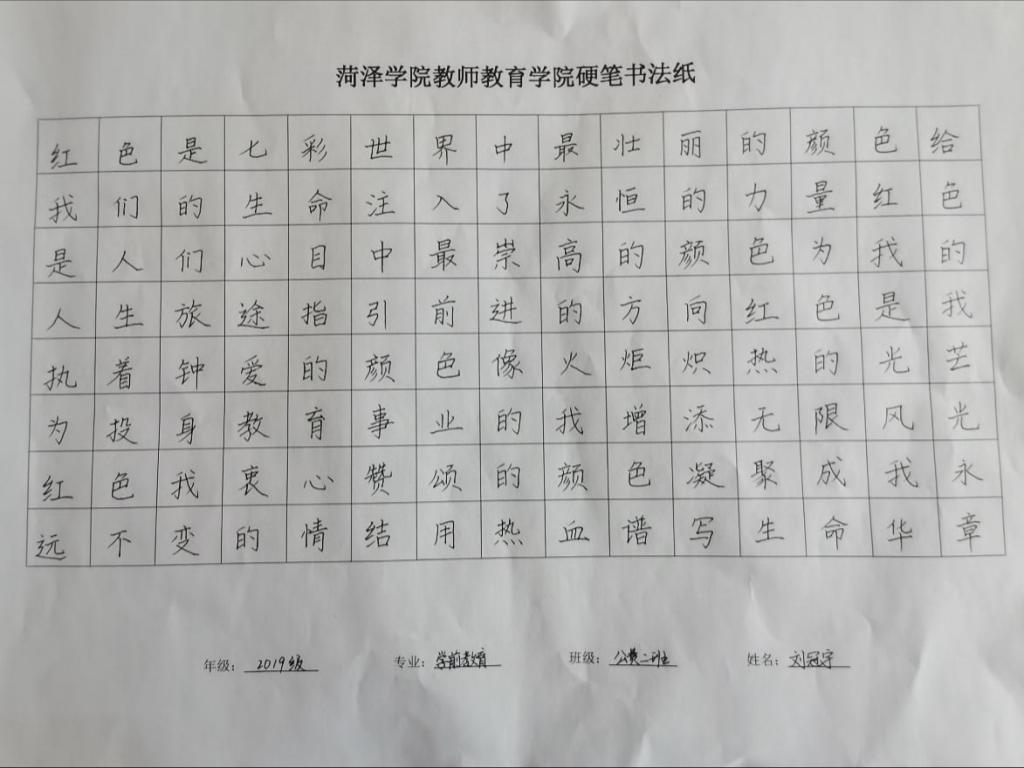 菏泽学院教师教育学院硬笔书法纸
红色是七彩世界中最壮丽的颜色给
我们的生命注入了永恒的力量红色
是人们心目中最崇高的颜色为我的
人生旅途指引前进的方向红色是我
执着钟爱的颜色像火炬炽热的光芒
为投身教育事业的我增添无限风光
红色我衷心赞颂的颜色凝聚成我永
远不变的情结用热血谱写生命华章
年级：2019级 专业：学前教育 班级：公费二班 姓名：刘冠宇